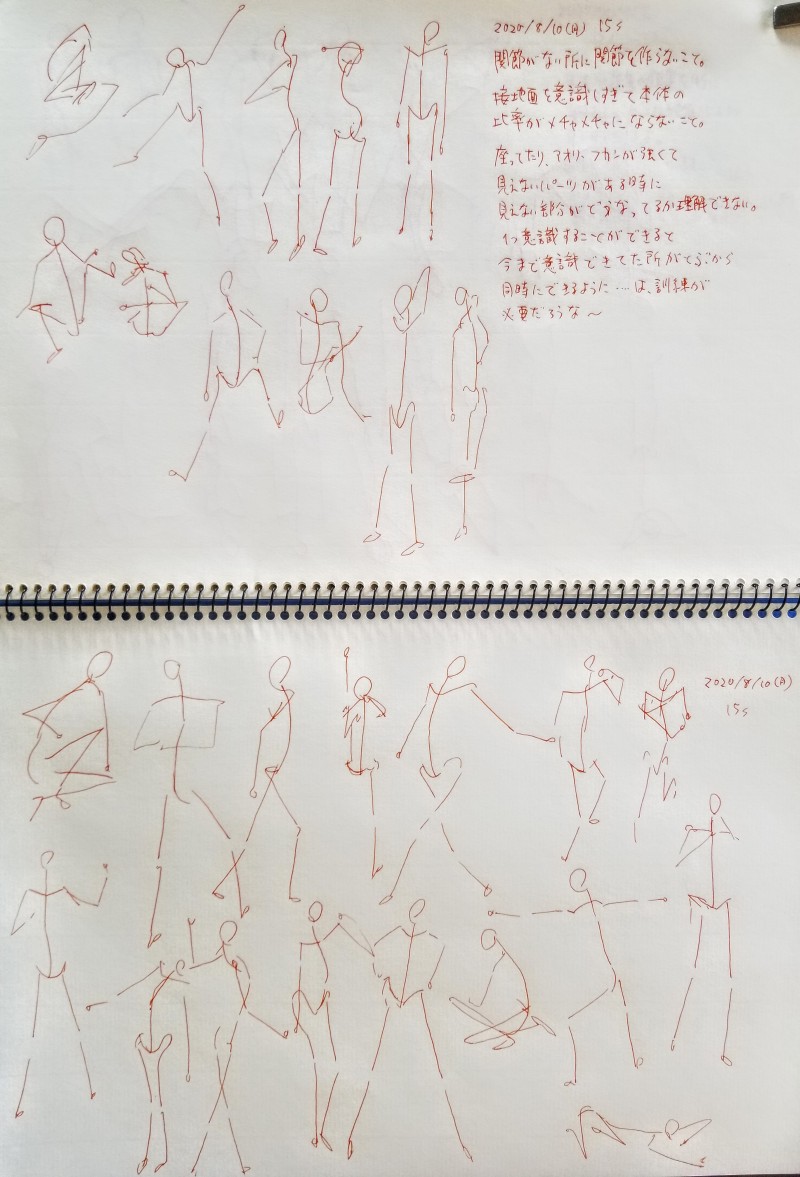 2020/8/10(月) 15s
関節がない所に関節を作らないこと。
接地面を意識しすぎて本体の
比率がメチャメチャにならないこと。
座ってたり、アオリ・フカンが強くて
見えないパーツがある時に
見えない部分がどうなってるか理解できない。
1つ意識することができると
今まで意識できてた所がとぶから
同時にできるように…は、訓練が
必要だろうな〜
2020/8/10(月)
15s